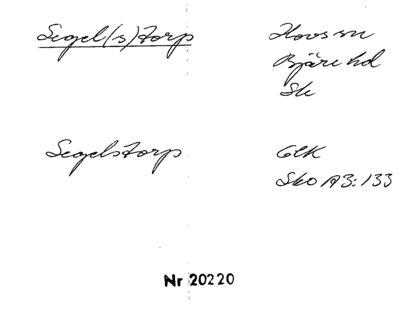 Segel(s)torp
Hovs sn
Bjäre hd
Sk
Segelstorp
GEK
Sko A3:133
Nr 20220